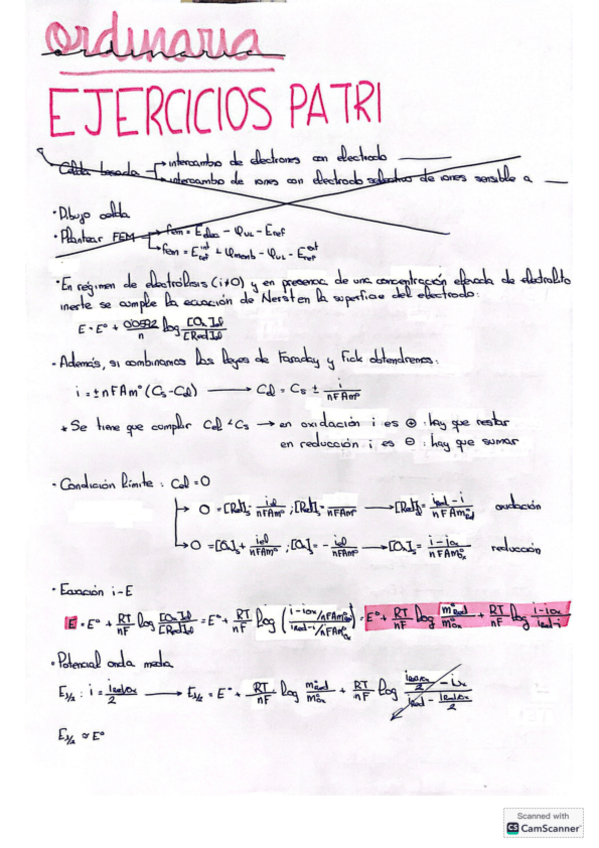 ordinaria
EJERCICIOS PATRI
Celda basada → intercambio de electrones con electrodo ____
→ intercambio de iones con electrodo selectivo de iones sensible a __
· Dibujo celda
· Plantear FEM → fem = Eelec - φus - Eref
→ fem = E int ref + φmemb - φus - E ext ref
· En régimen de electrólisis (i≠0) y en presencia de una concentración elevada de electrolito
inerte se cumple la ecuación de Nerst en la superficie del electrodo:
E = E° + 0'0592/n log [Ox]el/[Red]el
· Además, si combinamos las leyes de Faraday y Fick obtendremos:
i = ± nFAm° (Cs - Cel) → Cel = Cs ± i/nFAm°
* Se tiene que cumplir Cel < Cs → en oxidación i es ⊕ : hay que restar
en reducción i es ⊖ : hay que sumar
· Condición límite : Cel = 0
→ 0 = [Red]s - iel/nFAm° ; [Red]s = iel/nFAm° → [Red]el = ired - i/nFAm°red oxidación
→ 0 = [Ox]s + iel/nFAm° ; [Ox]s = - iel/nFAm° → [Ox]s = i - iox/nFAm°ox reducción
· Ecuación i-E
E = E° + RT/nF log [Ox]el/[Red]el = E° + RT/nF log (i - iox/nFAm°ox / ired - i/nFAm°ox) = E° + RT/nF log m°red/m°ox + RT/nF log i - iox/ired - i
· Potencial onda media
E1/2 : i = ired/ox/2 → E1/2 = E° + RT/nF log m°red/m°ox + RT/nF log ired/ox/2 - iox / ired - ired/ox/2
E1/2 ≈ E°
Scanned with
CS CamScanner